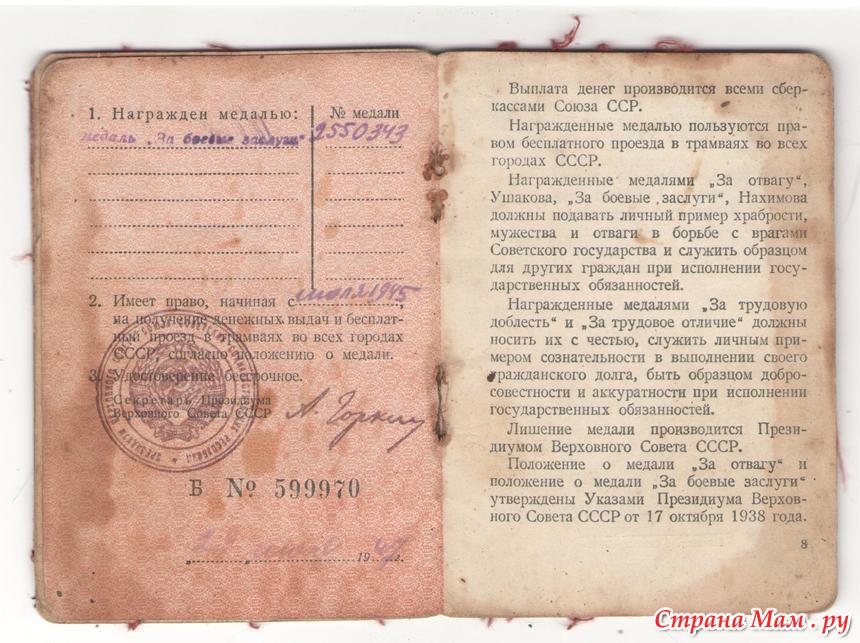 1. Награжден медалью:
№ медали
медаль „За боевые заслуги“ 2550343
2. Имеет право, начиная с июля 1945,
на получение денежных выдач и бесплат-
ный проезд в трамваях во всех городах
СССР, согласно положению о медали.
3. Удостоверение бессрочное.
Секретарь Президиума
Верховного Совета СССР
А. Горкин
Б № 599970
19 г.
Выплата денег производится всеми сбер-
кассами Союза ССР.
Награжденные медалью пользуются пра-
вом бесплатного проезда в трамваях во всех
городах СССР.
Награжденные медалями „За отвагу“,
Ушакова, „За боевые заслуги“, Нахимова
должны подавать личный пример храбрости,
мужества и отваги в борьбе с врагами
Советского государства и служить образцом
для других граждан при исполнении госу-
дарственных обязанностей.
Награжденные медалями „За трудовую
доблесть“ и „За трудовое отличие“ должны
носить их с честью, служить личным при-
мером сознательности в выполнении своего
гражданского долга, быть образцом добро-
совестности и аккуратности при исполнении
государственных обязанностей.
Лишение медали производится Прези-
диумом Верховного Совета СССР.
Положение о медали „За отвагу“ и
положение о медали „За боевые заслуги“
утверждены Указами Президиума Верхов-
ного Совета СССР от 17 октября 1938 года.
8
Страна Мам . ру